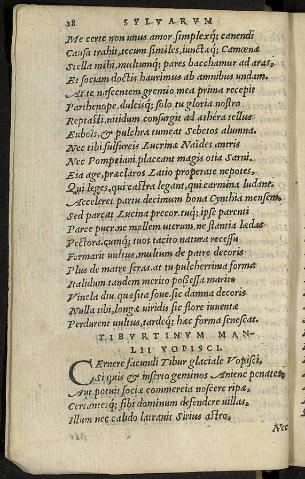 28 SYLVARVM
Me certe non unus amor, simplexq; canendi
Causa trahit, tecum similes, iunctæq; Camœnæ
Stella mihi, multumq; pares bacchamur ad aras,
Et sociam doctis haurimus ab amnibus undam.
At te nascentem gremio mea prima recepit
Parthenope, dulcisq; solo tu gloria nostro
Reptasti, nitidum consurgat ad æthera tellus
Eubois, & pulchra tumeat Sebetos alumna.
Nec tibi sulfureis Lucrinæ Naides antris
Nec Pompeiani placeant magis otia Sarni.
Eia age, præclaros Latio properate nepotes,
Qui leges, qui castra legant, qui carmina ludant.
Acceleret partu decimum bona Cynthia mensem,
Sed parcat Lucina precor. tuq; ipse parenti
Parce puer. ne mollem uterum, ne stantia lædas
Pectora. cumq; tuos tacito natura recessu
Formarit uultus, multum de patre decoris
Plus de matre feras. at tu pulcherrima forma
Italidum tandem merito possessa marito
Vincla diu quæsita foue. sic damna decoris
Nulla tibi, longæ uiridis sic flore iuuentæ
Perdurent uultus, tardeq; hæc forma senescat.
TIBVRTINVM MAN-
LII VOPISCI.
CErnere facundi Tibur glaciale Vopisci,
Si quis & inserto geminos Aniene penates,
Aut potuit sociæ commercia noscere ripæ,
Certantesq; sibi dominum defendere uillas.
Illum nec calido latrauit Sirius astro,
Nec